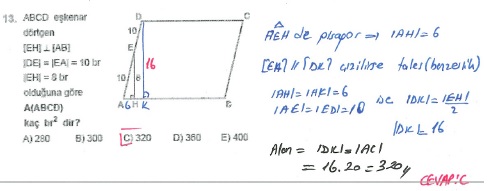 13. ABCD eşkenar
dörtgen
[EH] ⊥ [AB]
|DE| = |EA| = 10 br
|EH| = 8 br
olduğuna göre
A(ABCD)
kaç br² dir?
A) 280 B) 300 C) 320 D) 360 E) 400
D C
10
E
16
10 8
A 6 H K B
AEH de pisagor ⇒ |AH| = 6
[EH] // [DK] çizilirse tales (benzerlik)
|AH| = |HK| = 6
|AE| = |ED| = 10 ise |DK| = |EH|/2
|DK| = 16
Alan = |DK| = |AC|
= 16.20 = 320
CEVAP: C